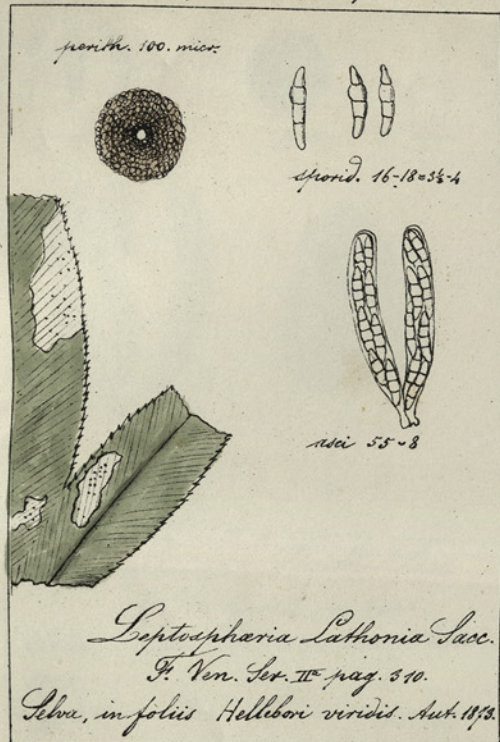 perith. 100. micr.
sporid. 16-18=3½-4
asci 55-8
Leptosphæria Lathonia Sacc.
F. Ven. Ser. IIᵃ pag. 310.
Selva, in foliis Hellebori viridis. Aut. 1873.